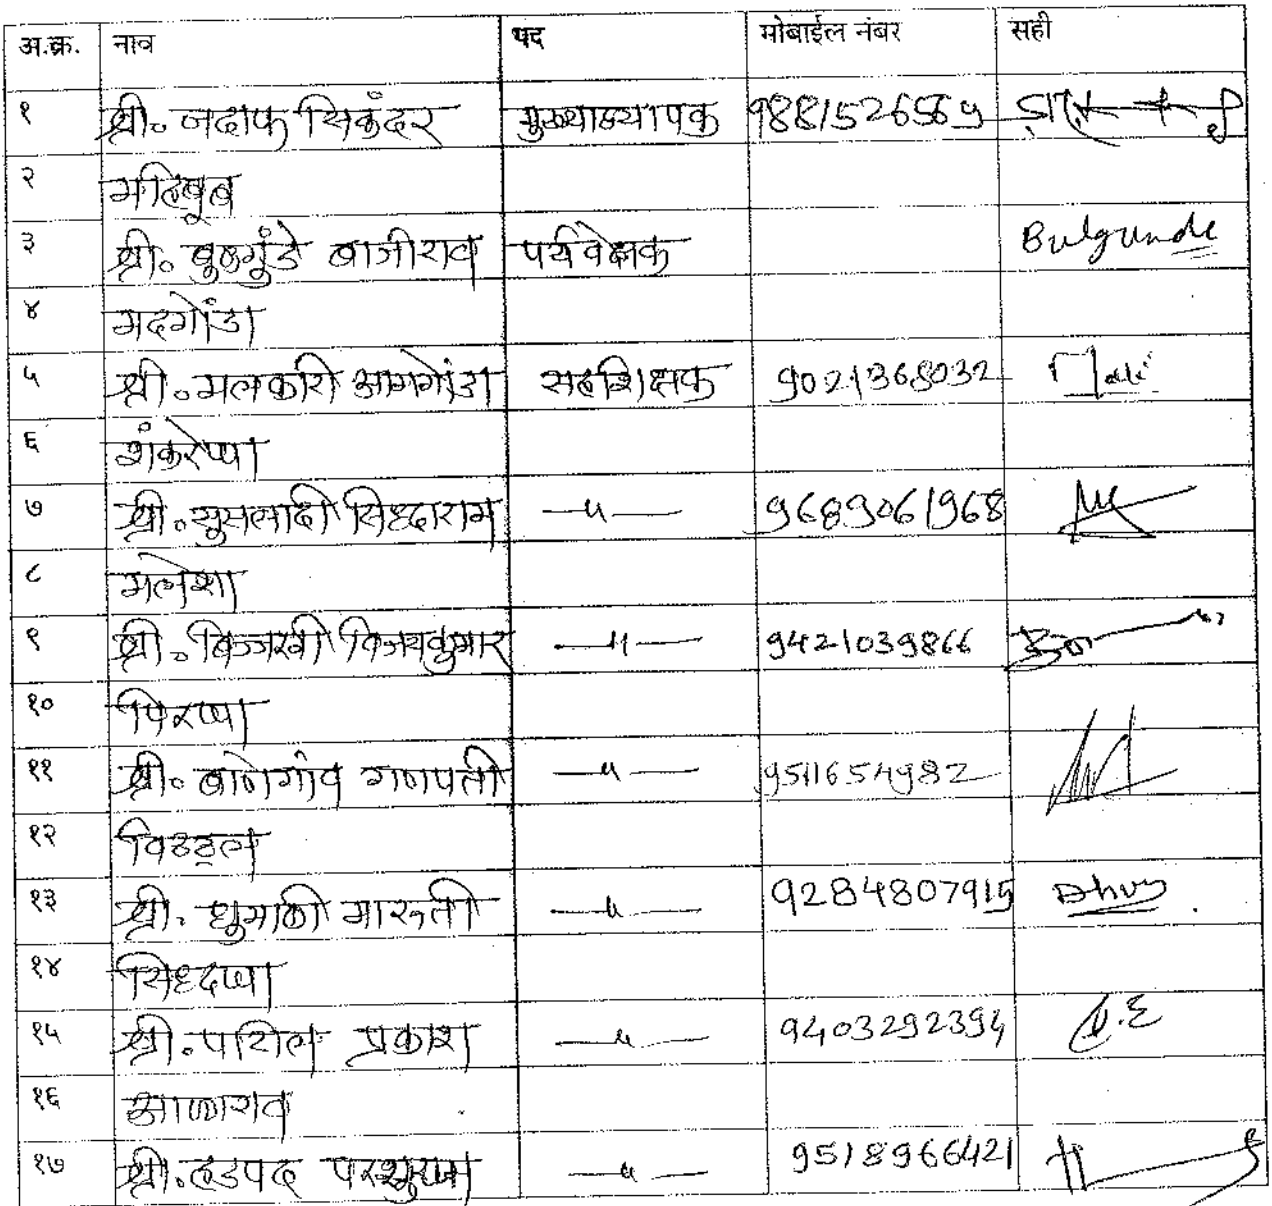 अ.क्र. नाव पद मोबाईल नंबर सही
१ श्री. जदाफ सिकंदर मुख्याध्यापक 9881526569
२ महिबूब
३ श्री. बुळगुंडे बाजीराव पर्यवेक्षक Bulgunde
४ मदगोंडा
५ श्री. मलकारी आमगोंडा सहशिक्षक 9021368032
६ शंकरेप्पा
७ श्री. सुसलादी सिध्दाराम —〃— 9689061968
८ मलेशा
९ श्री. बिज्जरगी विजयकुमार —〃— 9421039866
१० पिरप्पा
११ श्री. बानेगांव गणपती —〃— 9511654982
१२ विठ्ठल
१३ श्री. धुमाळी मारुती —〃— 9284807915
१४ सिध्दप्पा
१५ श्री. पाटील प्रकाश —〃— 9403292394
१६ आण्णाराव
१७ श्री. हडपद परशुराम —〃— 9518966421